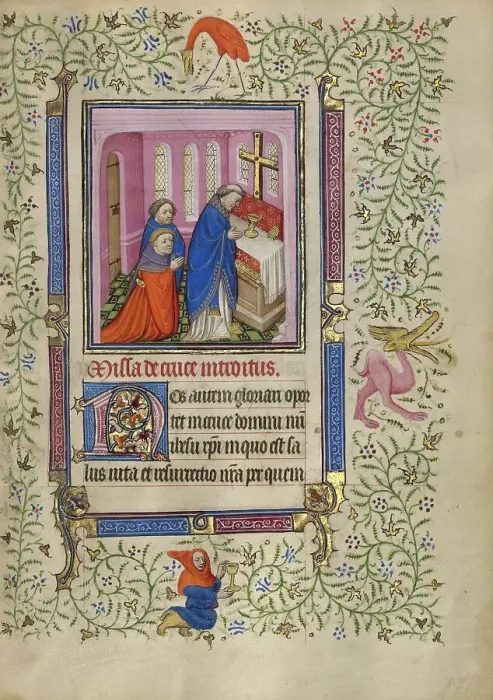 Missa de cruce introitus.
Nos autem gloriari opor
tet in cruce domini nri
ihesu xpi in quo est sa
lus uita et resurrectio nra per quem